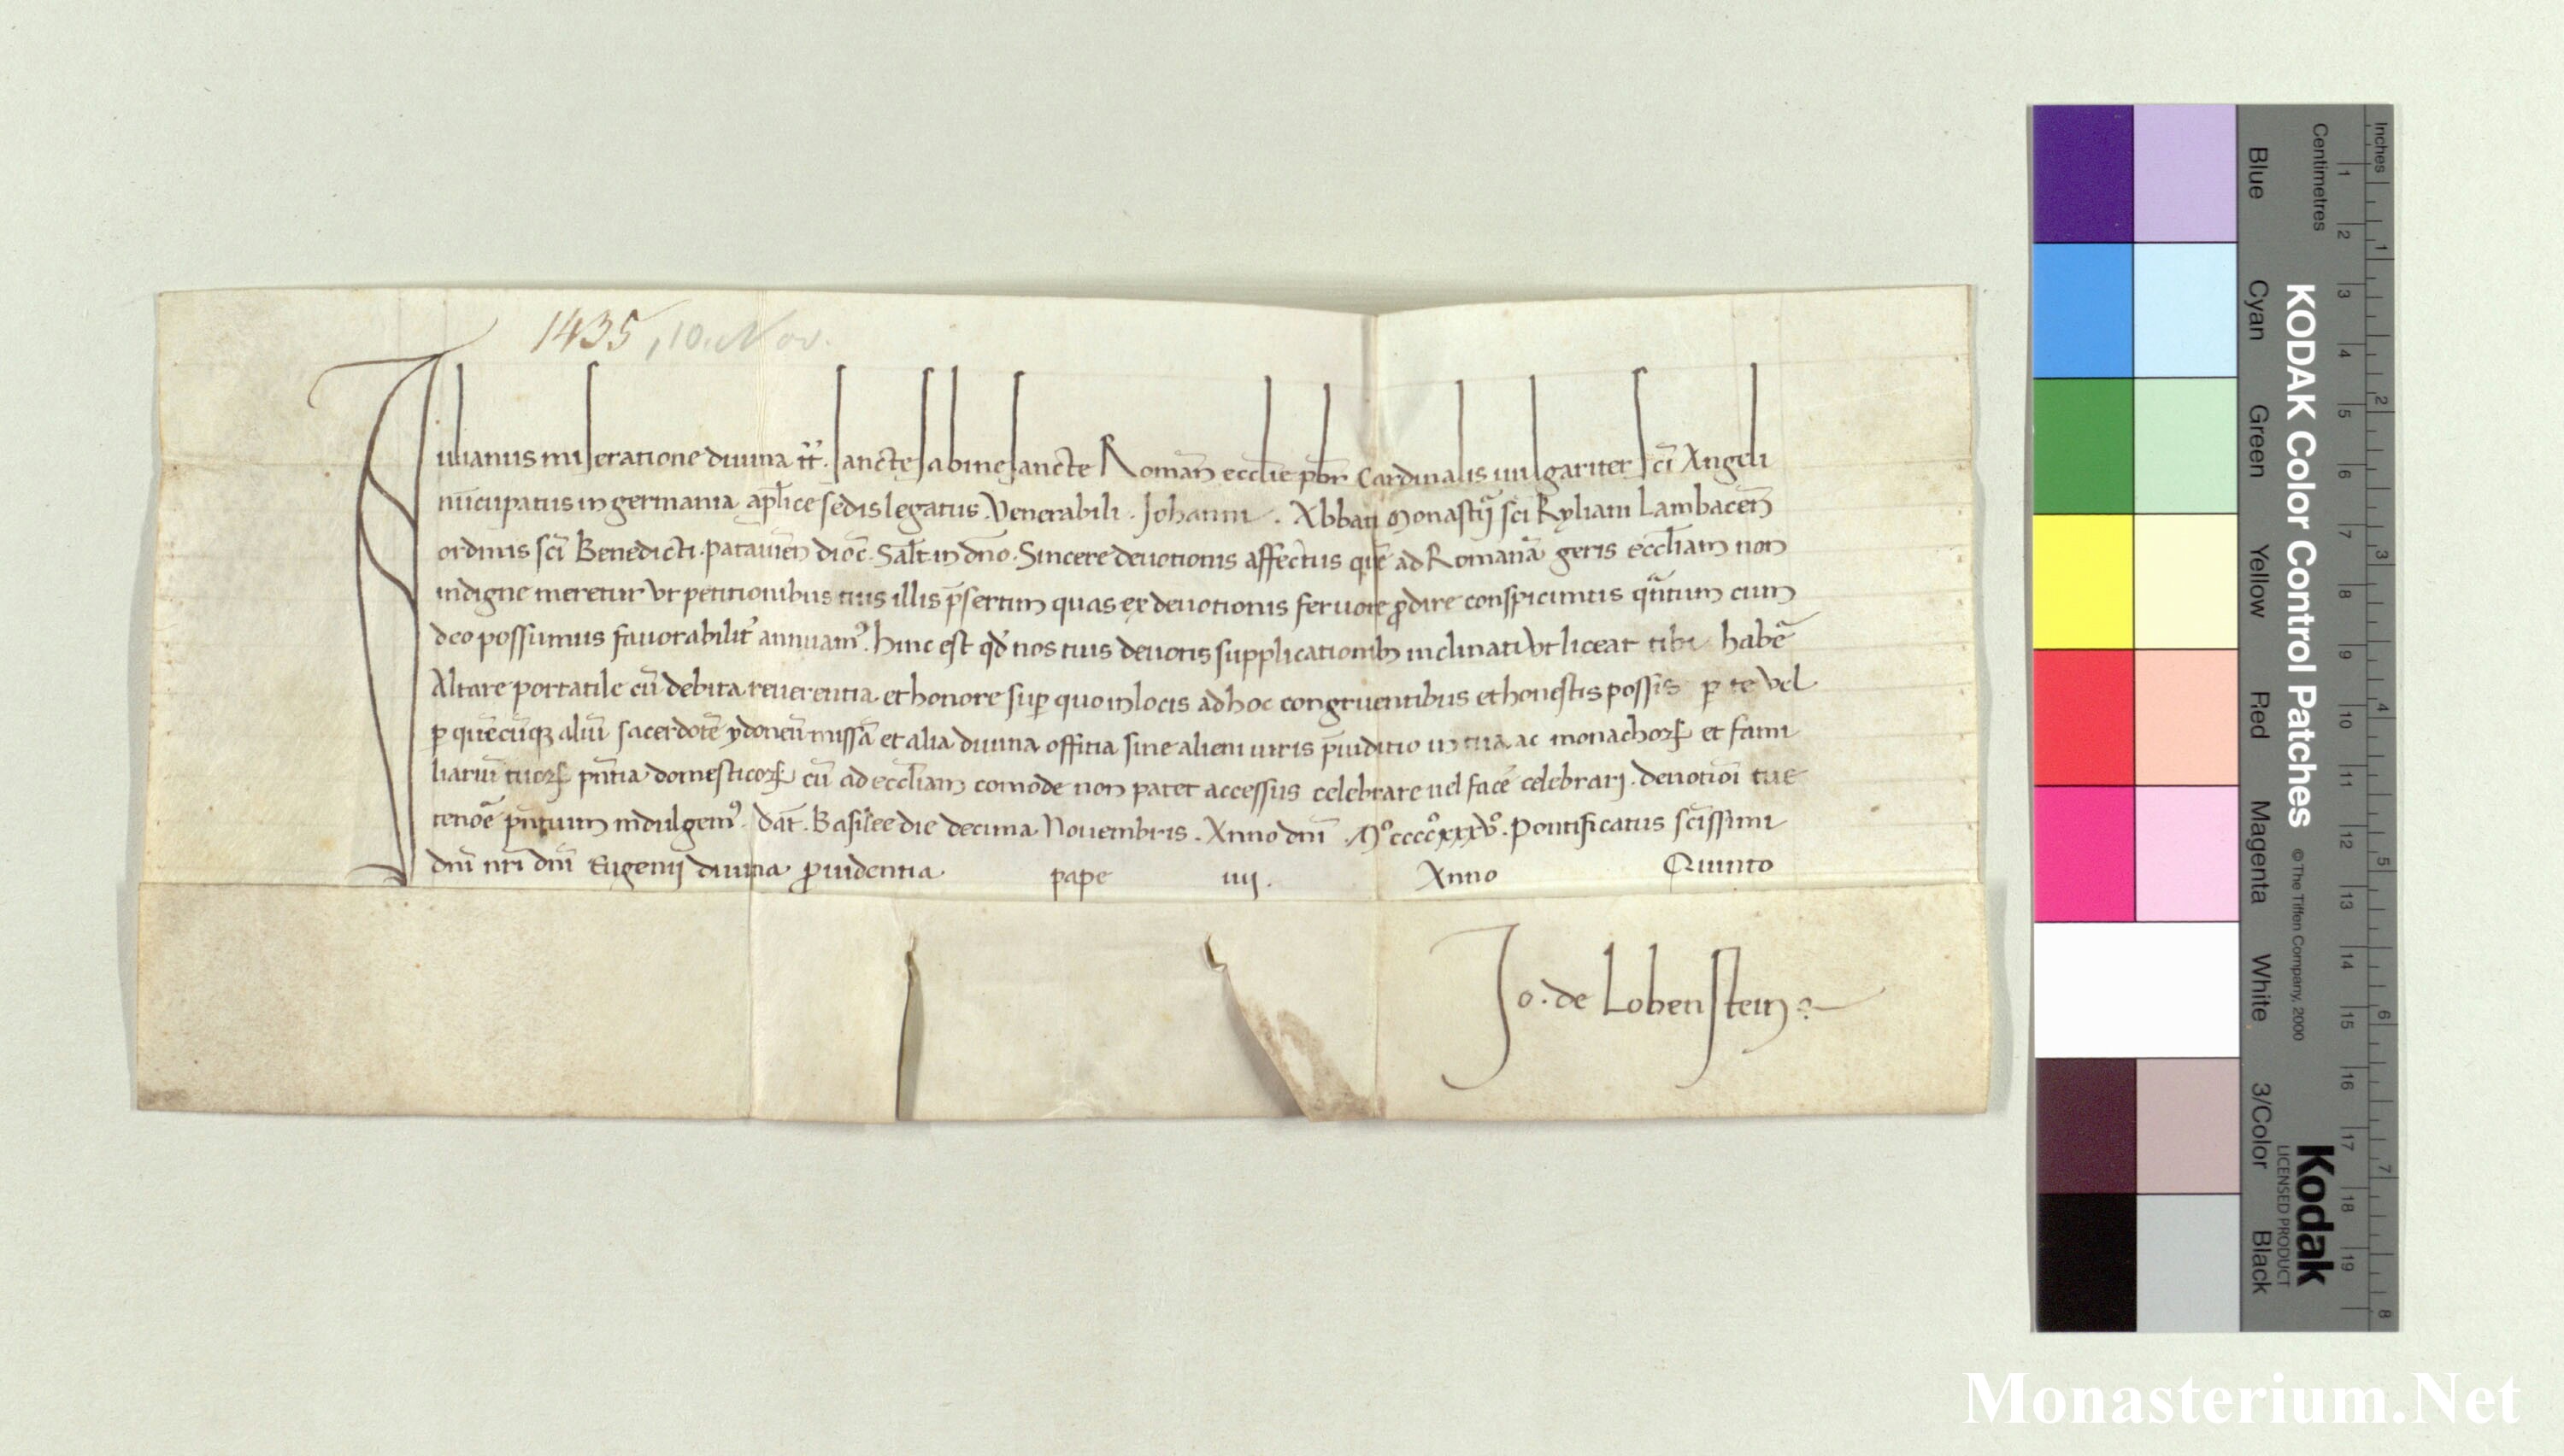 1435, 10. Nov.
Iulianus miseratione diuina tt̄. sancte sabine sancte Roman̄ eccl̄ie pbr̄ Cardinalis uulgariter sci̅ Angeli
nūcupatus in germania apl̄ice sedis legatus. Venerabili. Johanni. Abbati Monastīj sci̅ Kyliani Lambacen̄
ordinis sci̅ Benedicti. patauien̄ dioc̄. Sal̄t in dn̄o. Sincere deuotionis affectus quē ad Romanā geris eccl̄iam non
indigne meretur vt petitionibus tuis illis p̄sertim quas ex deuotionis feruore ꝓdire conspicimus qn̄tum cum
deo possumus fauorabilit᾽ annuam᾽. hinc est qd̄ nos tuis deuotis supplicationibꝫ inclinati vt liceat tibi habē
Altare portatile cū debita reuerentia et honore suꝑ quo in locis ad hoc congruentibus et honestis possis ꝑ te vel
ꝑ quēcūqꝫ aliū sacerdotē ydoneū missā et alia diuina offitia sine alieni iuris p̄iuditio in tua ac monachoꝝ et fami
liariū tuoꝝ pn̄tia domesticoꝝ cū ad eccl̄iam comode non patet accessus celebrare uel facē celebrarj. deuotioī tue
tenōe pn̄tium indulgem᾽. Dat̄. Basilee die decima Nouembris. Anno dni̅ .Mº ccccº xxxvº. Pontificatus sci̅ssimi
dni̅ nri̅ dni̅ Eugenij diuina ꝓuidentia pape iiij. Anno Quinto
Jo. de Lobenstein
Inches
Centimetres
1 2 3 4 5 6 7 8 9 10 11 12 13 14 15 16 17 18 19
1 2 3 4 5 6 7 8
KODAK Color Control Patches © The Tiffen Company, 2000
Kodak
LICENSED PRODUCT
Blue Cyan Green Yellow Red Magenta White 3/Color Black
Monasterium.Net